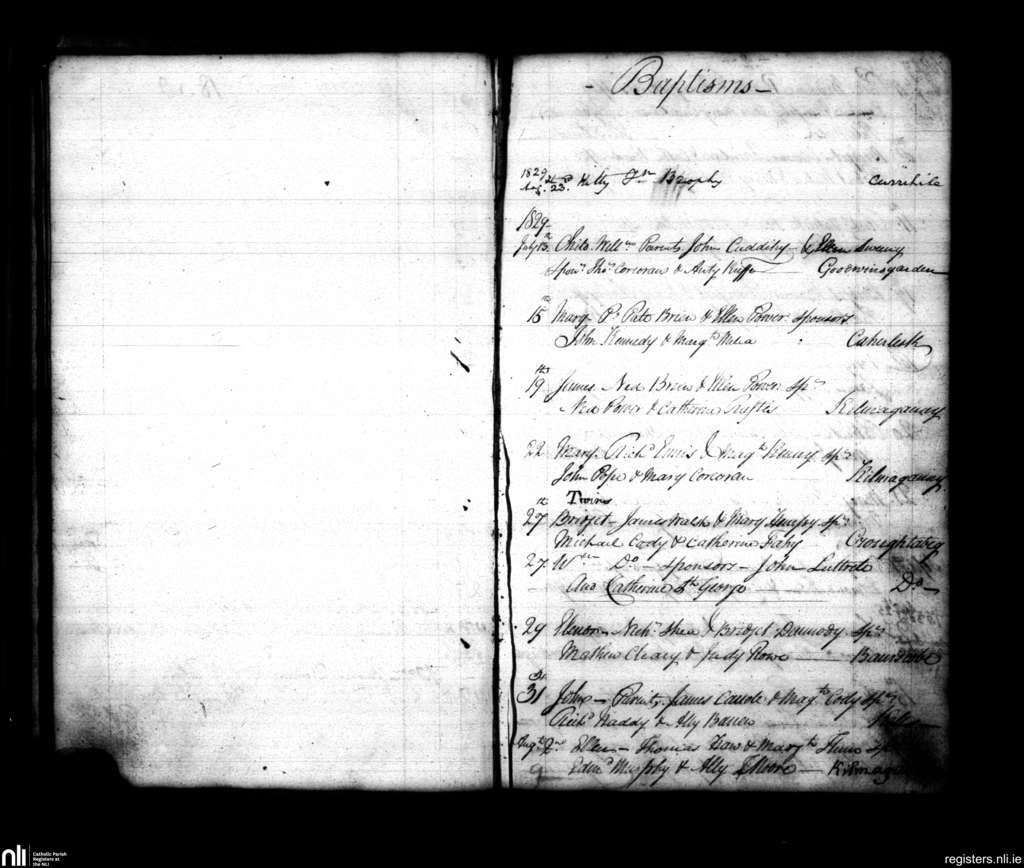 - Baptisms -
1829
Aug. 23. Kitty Brophy Currihile
1829
July 13. Child Willm Parents John Cuddihy & Ellen Sweeny
Spons. Thos Corcoran & Anty Goodwinsgarden
15 Mary Pt. Patt Brien & Ellen Power Sponsors
John Kennedy & Margt Melia Caherlesk
19 James Ned Brien & Ellen Power Sps
Ned Power & Catherine Kilmaganny
22 Mary Richd & Margt Kenny Sps
John Pope & Mary Corcoran Kilmaganny
Twins
27 Bridget - James Walsh & Mary Sps
Michael Cody & Catherine Fahy Croughtabeg
27 Wm Do - Sponsors - John
And Catherine St George Do -
29 Elenor - Nichs Shea & Bridget Sps
Mathew Cleary & Judy Rowe
31 John - Parents James & Margt Cody Sps
Richd Waddy & Ally
Augt Ellen - Thomas & Margt
9 Edmd Murphy & Ally Moore - Kilmag
nli
Catholic Parish
Registers at
the NLI
registers.nli.ie